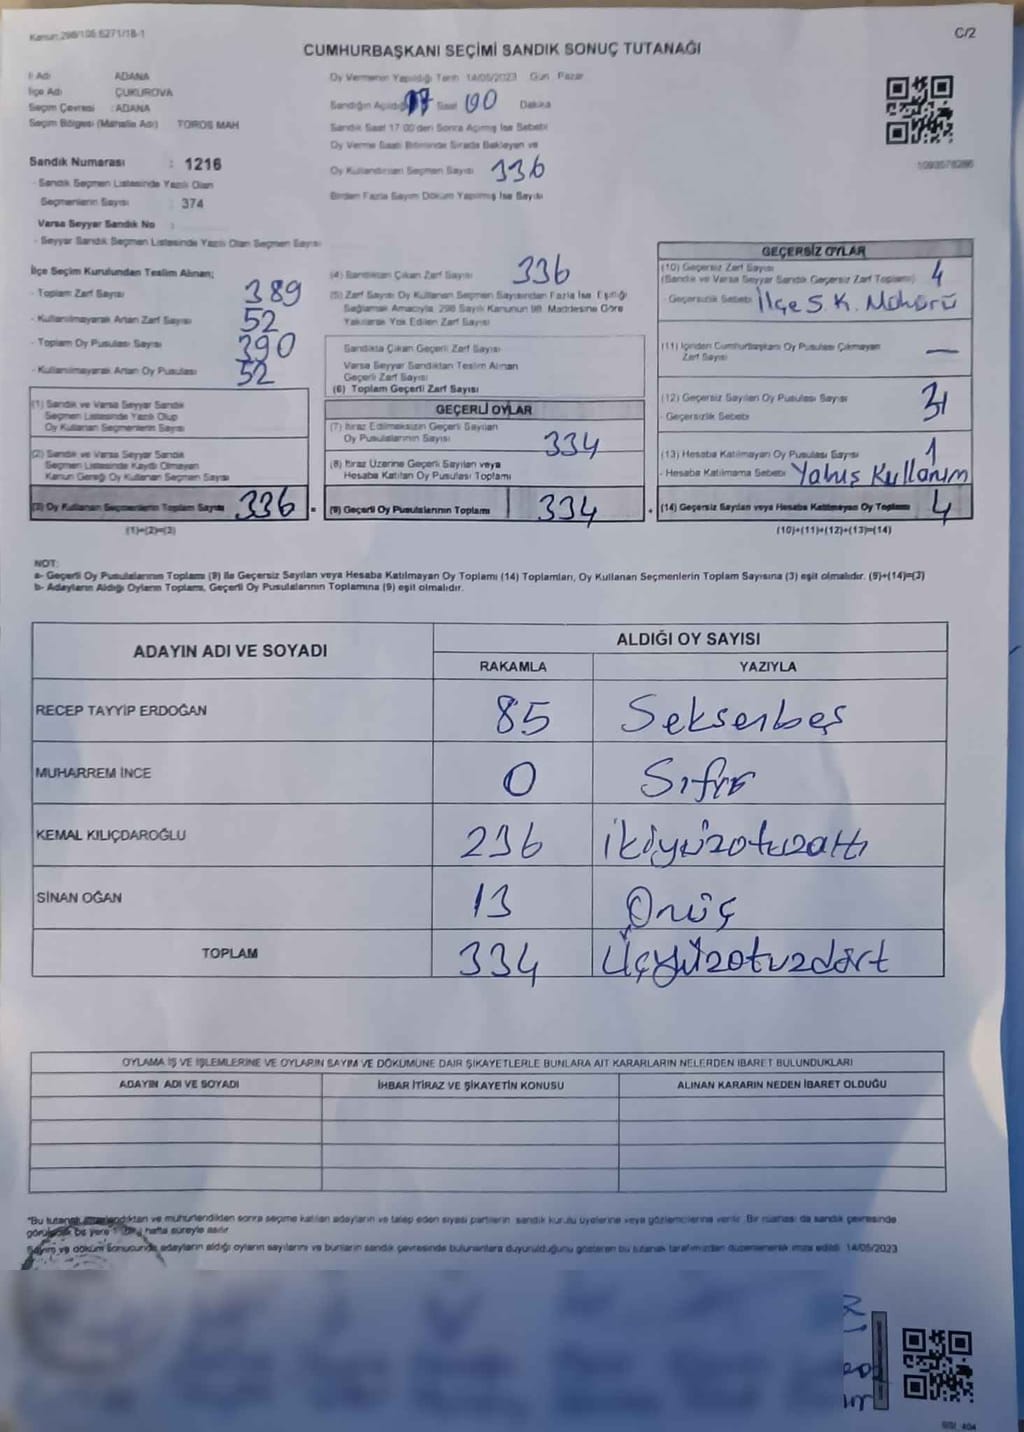 Kanun:298/105.6271/18-1
C/2
CUMHURBAŞKANI SEÇİMİ SANDIK SONUÇ TUTANAĞI
İl Adı ADANA
İlçe Adı ÇUKUROVA
Seçim Çevresi : ADANA
Seçim Bölgesi (Mahalle Adı) TOROS MAH
Sandık Numarası : 1216
- Sandık Seçmen Listesinde Yazılı Olan
Seçmenlerin Sayısı : 374
Varsa Seyyar Sandık No :
- Seyyar Sandık Seçmen Listesinde Yazılı Olan Seçmen Sayısı
Oy Vermenin Yapıldığı Tarih 14/05/2023 Gün Pazar
Sandığın Açıldığı 17 Saat 00 Dakika
Sandık Saat 17:00'den Sonra Açılmış İse Sebebi
Oy Verme Saati Bitiminde Sırada Bekleyen ve
Oy Kullandırılan Seçmen Sayısı 336
Birden Fazla Sayım Döküm Yapılmış İse Sayısı
1090578286
İlçe Seçim Kurulundan Teslim Alınan;
- Toplam Zarf Sayısı 389
- Kullanılmayarak Artan Zarf Sayısı 52
- Toplam Oy Pusulası Sayısı 390
- Kullanılmayarak Artan Oy Pusulası 52
(1) Sandık ve Varsa Seyyar Sandık
Seçmen Listesinde Yazılı Olup
Oy Kullanan Seçmenlerin Sayısı
(2) Sandık ve Varsa Seyyar Sandık
Seçmen Listesinde Kaydı Olmayan
Kanun Gereği Oy Kullanan Seçmen Sayısı
(3) Oy Kullanan Seçmenlerin Toplam Sayısı 336 =
(1)+(2)=(3)
(4) Sandıktan Çıkan Zarf Sayısı 336
(5) Zarf Sayısı Oy Kullanan Seçmen Sayısından Fazla İse, Eşitliği
Sağlamak Amacıyla, 298 Sayılı Kanunun 98. Maddesine Göre
Yakılarak Yok Edilen Zarf Sayısı
Sandıkta Çıkan Geçerli Zarf Sayısı
Varsa Seyyar Sandıktan Teslim Alınan
Geçerli Zarf Sayısı
(6) Toplam Geçerli Zarf Sayısı
GEÇERLİ OYLAR
(7) İtiraz Edilmeksizin Geçerli Sayılan
Oy Pusulalarının Sayısı 334
(8) İtiraz Üzerine Geçerli Sayılan veya
Hesaba Katılan Oy Pusulası Toplamı
(9) Geçerli Oy Pusulalarının Toplamı 334 +
GEÇERSİZ OYLAR
(10) Geçersiz Zarf Sayısı
(Sandık ve Varsa Seyyar Sandık Geçersiz Zarf Toplamı) 4
- Geçersizlik Sebebi İlçe S. K. Mührü
(11) İçinden Cumhurbaşkanı Oy Pusulası Çıkmayan
Zarf Sayısı —
(12) Geçersiz Sayılan Oy Pusulası Sayısı
- Geçersizlik Sebebi
(13) Hesaba Katılmayan Oy Pusulası Sayısı 1
- Hesaba Katılmama Sebebi Yalnış Kullanım
(14) Geçersiz Sayılan veya Hesaba Katılmayan Oy Toplamı 4
(10)+(11)+(12)+(13)=(14)
NOT:
a- Geçerli Oy Pusulalarının Toplamı (9) ile Geçersiz Sayılan veya Hesaba Katılmayan Oy Toplamı (14) Toplamları, Oy Kullanan Seçmenlerin Toplam Sayısına (3) eşit olmalıdır. (9)+(14)=(3)
b- Adayların Aldığı Oyların Toplamı, Geçerli Oy Pusulalarının Toplamına (9) eşit olmalıdır.
ADAYIN ADI VE SOYADI ALDIĞI OY SAYISI
RAKAMLA YAZIYLA
RECEP TAYYİP ERDOĞAN 85 Seksenbeş
MUHARREM İNCE 0 Sıfır
KEMAL KILIÇDAROĞLU 236 İkiyüzotuzaltı
SİNAN OĞAN 13 Onüç
TOPLAM 334 Üçyüzotuzdört
OYLAMA İŞ VE İŞLEMLERİNE VE OYLARIN SAYIM VE DÖKÜMÜNE DAİR ŞİKAYETLERLE BUNLARA AİT KARARLARIN NELERDEN İBARET BULUNDUKLARI
ADAYIN ADI VE SOYADI İHBAR İTİRAZ VE ŞİKAYETİN KONUSU ALINAN KARARIN NEDEN İBARET OLDUĞU
*Bu tutanak ve mühürlendikten sonra seçime katılan adayların ve talep eden siyasi partilerin sandık kurulu üyelerine veya gözlemcilerine verilir. Bir nüshası da sandık çevresinde
görülecek bir yere 1 hafta süreyle asılır.
Sayım ve döküm sonucunda adayların aldığı oyların sayılarını ve bunların sandık çevresinde bulunanlara duyurulduğunu gösteren bu tutanak tarafımızdan düzenlenerek imza edildi. 14/05/2023